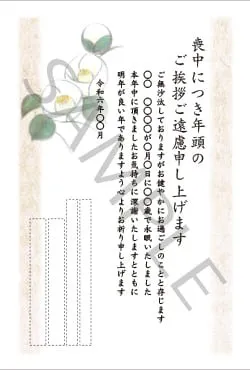 喪中につき年頭の
ご挨拶ご遠慮申し上げます
ご無沙汰しておりますがお健やかにお過ごしのことと存じます
〇〇 〇〇〇〇が〇月〇日に〇〇歳で永眠いたしました
本年中に頂きましたお気持ちに深謝いたしますとともに
明年が良い年でありますよう心よりお祈り申し上げます
令和六年〇〇月
SAMPLE